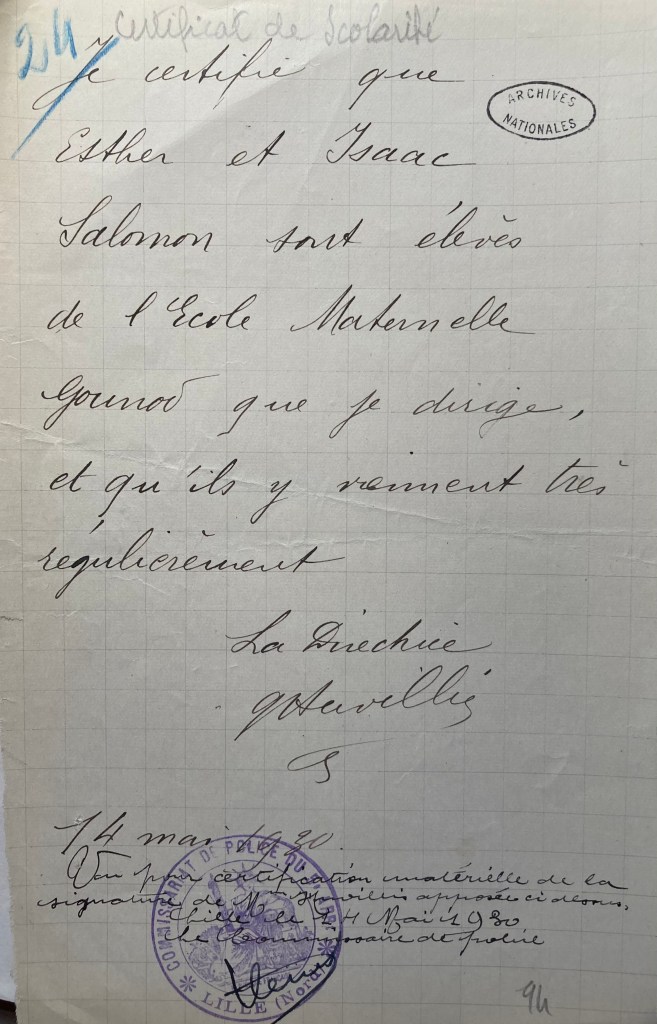 24 Certificat de Scolarité
Je certifie que
ARCHIVES
NATIONALES
Esther et Isaac
Salomon sont élèves
de l'Ecole Maternelle
Gounod que je dirige,
et qu'ils y viennent très
régulièrement
La Directrice
14 mai 1930.
Vu pour certification matérielle de la
signature de apposée ci dessus,
Lille le 14 Mai 1930
Le Commissaire de police
COMMISSARIAT DE POLICE DU
LILLE (Nord)
94